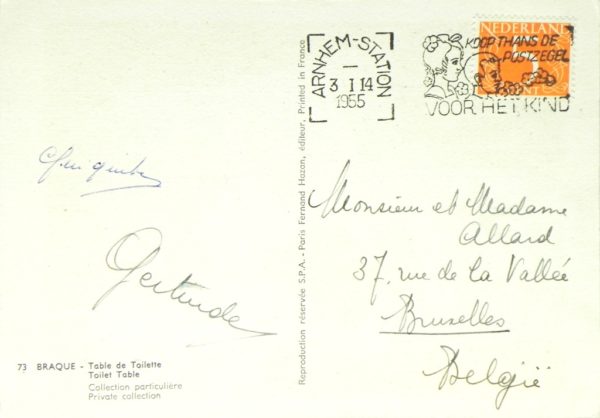 ARNHEM-STATION
3 I 14
1955
NEDERLAND
KOOP THANS DE
POSTZEGEL
VOOR HET KIND
Gertrude
Monsieur et Madame
Allard
37, rue de la Vallée
Bruxelles
België
Reproduction réservée S.P.A. - Paris Fernand Hazan, éditeur, Printed in France
73 BRAQUE - Table de Toilette
Toilet Table
Collection particulière
Private collection